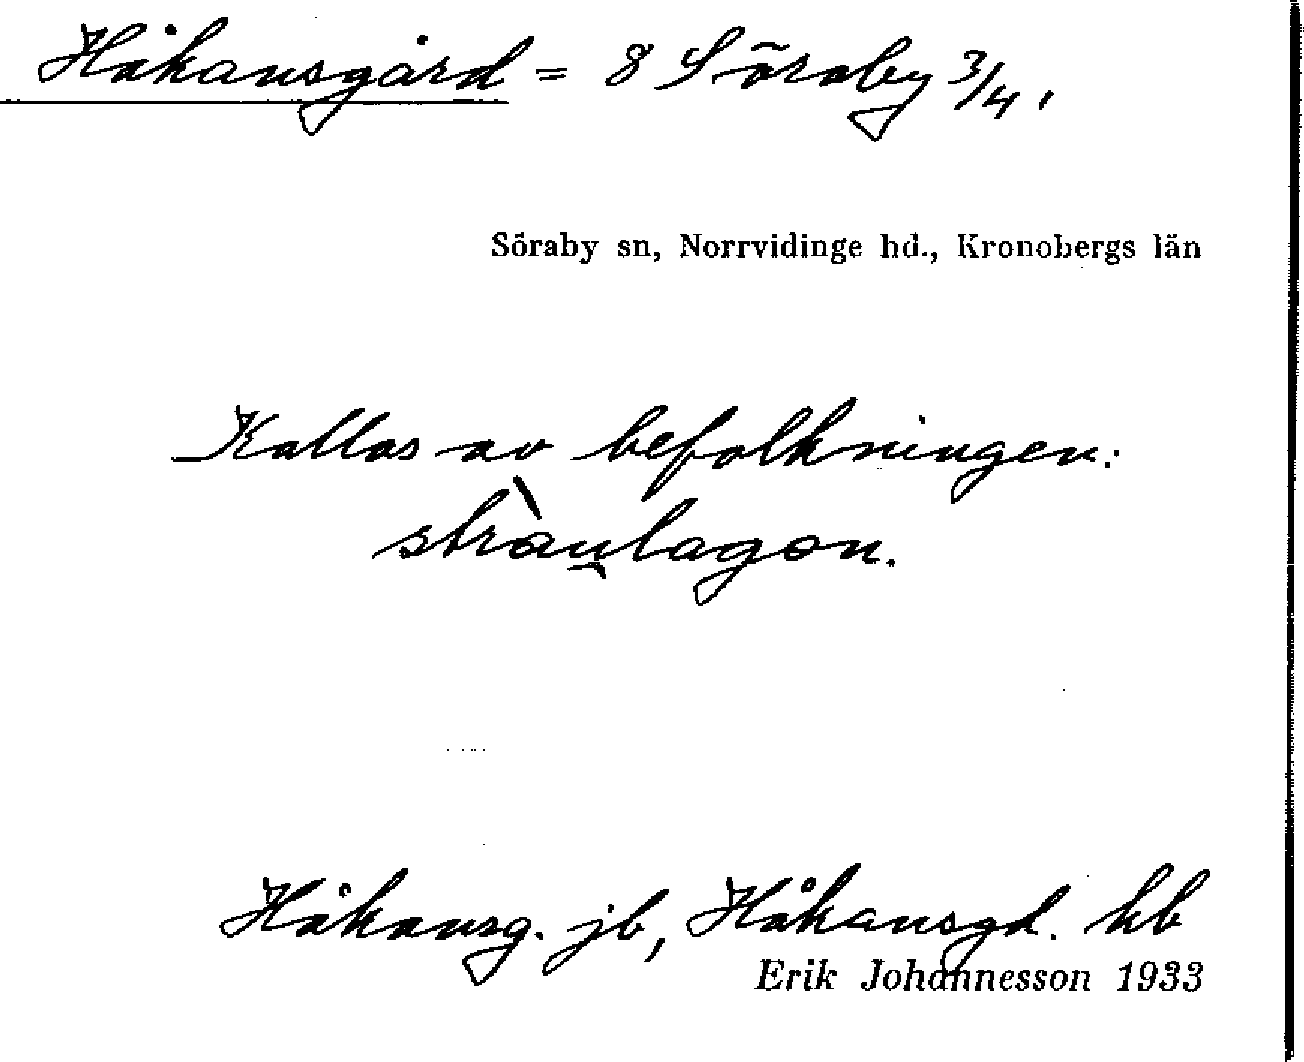 Håkansgård = 8 Söraby 3/4,
Söraby sn, Norrvidinge hd., Kronobergs län
Kallas av befolkningen:
Håkansg. jb, Håkansgd. kb
Erik Johannesson 1933